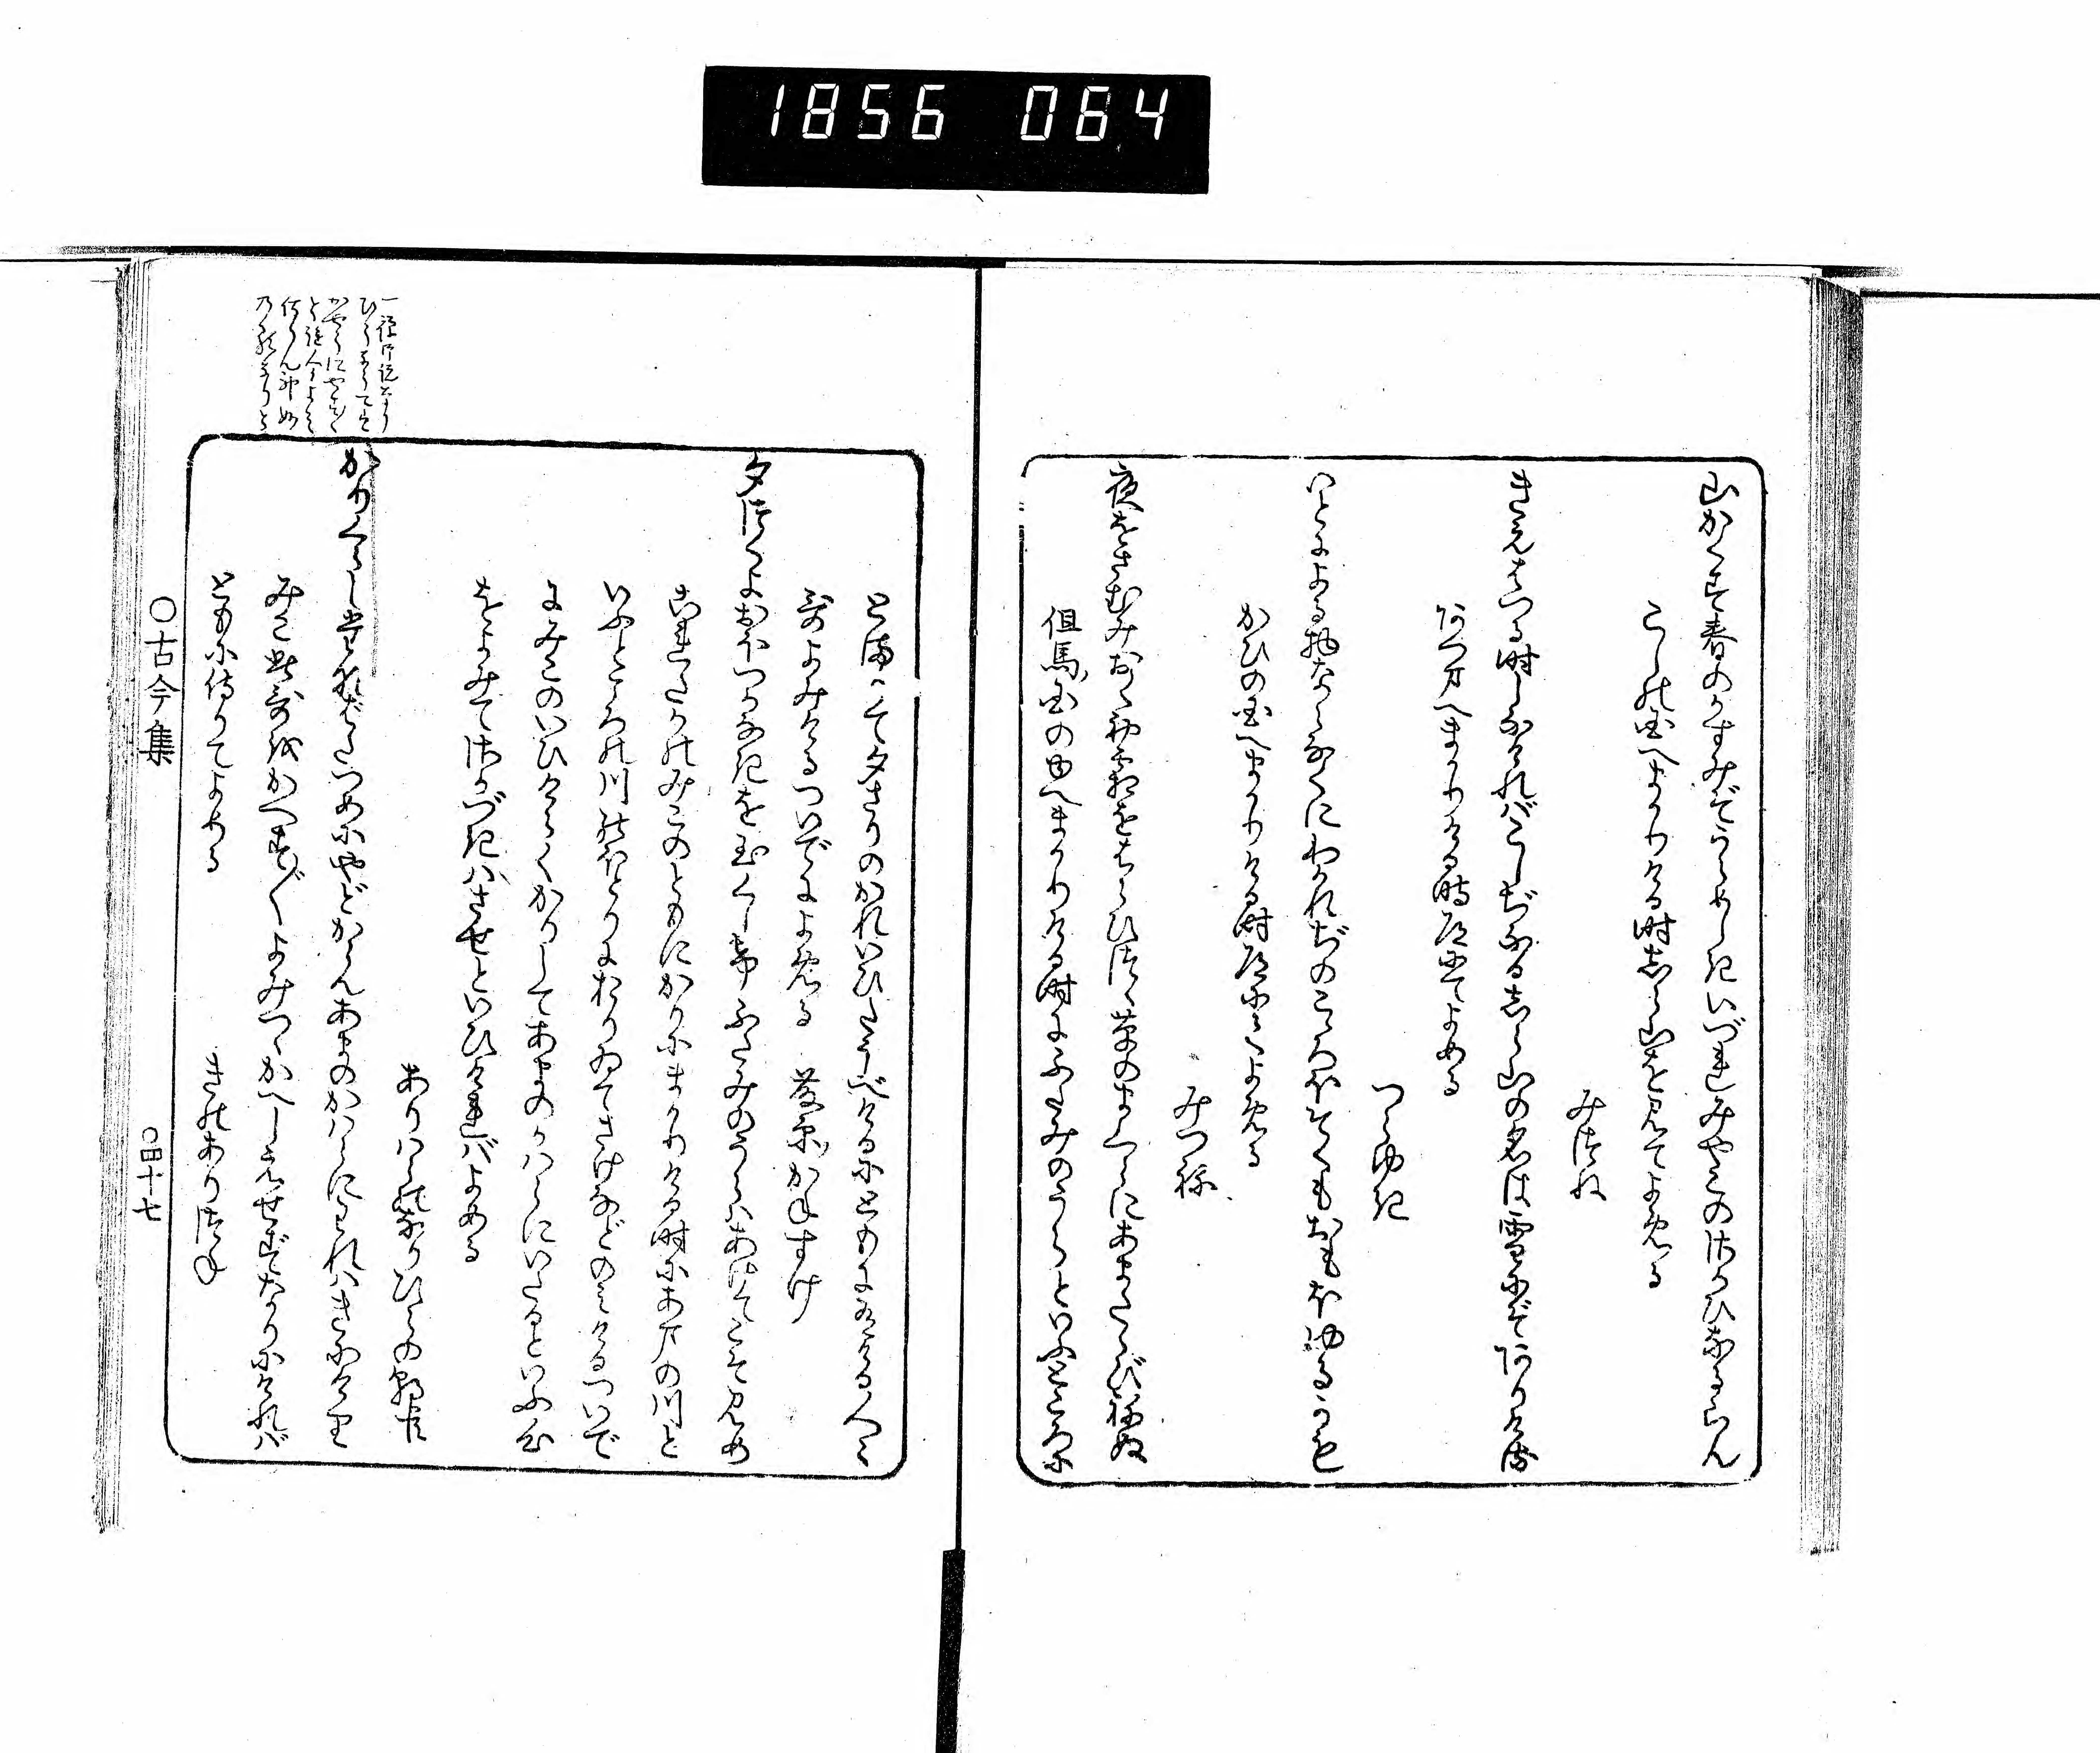 1856 064
山かくす春のかすみぞうらめしきいづれみやこのさかひなるらん
こしの国へまかりける時しら山を見てよめる
みつね
きえはつる時しなければこしぢなるしら山の名は雪にぞありける
あづまへまかりける時道にてよめる
つらゆき
いとによる物ならなくにわかれぢのこゝろぼそくもおもほゆるかな
かひの国へまかりける時道にてよめる
みつね
夜をさむみおくはつ霜をはらひつゝ草のまくらにあまたゝびねぬ
但馬国のゆへまかりける時にふたみのうらといふところに
とまりて夕さりのかれいひたうべけるにともにありける人々
歌よみけるついでによめる　藤原かねすけ
夕づくよおぼつかなきを玉くしげふたみのうらはあけてこそ見め
これたかのみこのともにかりにまかりける時にあまの川と
いふところの川のほとりにおりゐてさけなどのみけるついで
にみこのいひけらくかりしてあまのかはらにいたるといふ心
をよみてさかづきはさせといひければよめる
ありはらのなりひらの朝臣
かりくらしたなばたつめにやどからんあまのかはらにわれはきにけり
みこ此歌をかへす〴〵よみつゝかへしえせずなりにければ
ともに侍りてよめる
きのありつね
○古今集
○四十七